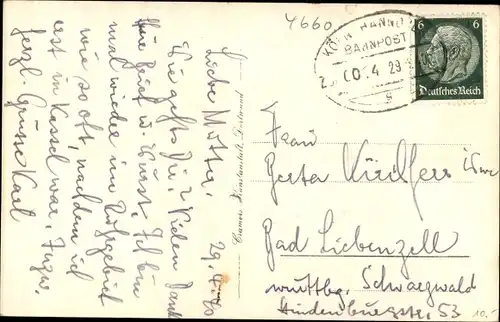 4660
KÖLN HANNO
BAHNPOST
Z. 4 29
s
6
Deutsches Reich
29.4.40
Liebe Mutter,
Wie geht's Dir? Vielen Dank
für Brief u. Wurst. Ich bin
mal wieder im Ruhrgebiet
wie so oft, nachdem ich
erst in Kassel war. Inzw.
herzl. Grüsse Karl
Cramers Kunstanstalt, Dortmund
Frau
Berta
Bad Liebenzell
württbg. Schwarzwald
Hindenburgstr. 53
10.-